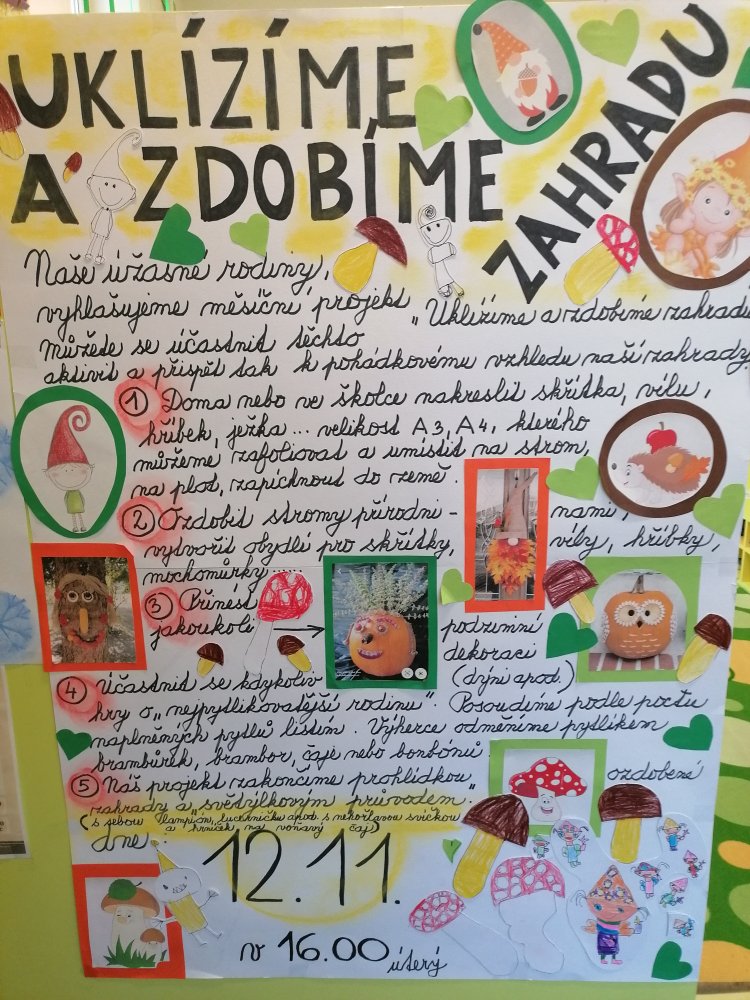 UKLÍZÍME
A ZDOBÍME
ZAHRADU
Naše úžasné rodiny,
vyhlašujeme měsíční projekt „Uklízíme a zdobíme zahradu
Můžete se účastnit těchto
aktivit a přispět tak k pohádkovému vzhledu naší zahrady
① Doma nebo ve školce nakreslit skřítka, vílu,
hříbek, ježka... velikost A3, A4, kterého
můžeme zafoliovat a umístit na strom,
na plot, zapíchnout do země.
② Ozdobit stromy přírodni- nami,
vytvořit obydlí pro skřítky, víly, hříbky,
mochomůrky
③ Přinést
jakoukoli → podzimní
dekoraci
(dýni apod.)
④ Účastnit se kdykoliv
hry o „nejpytlíkovatější rodinu". Posoudíme podle počtu
naplněných pytlů listím. Výherce odměníme pytlíkem
brambůrek, brambor, čaje nebo bonbónů.
⑤ Náš projekt zakončíme prohlídkou ozdobené
zahrady a „světýlkovým průvodem."
(s sebou lampión, lucerničku apod. s nehořlavou svíčkou
a hrníček na voňavý čaj)
dne
12.11.
v 16.00 úterý